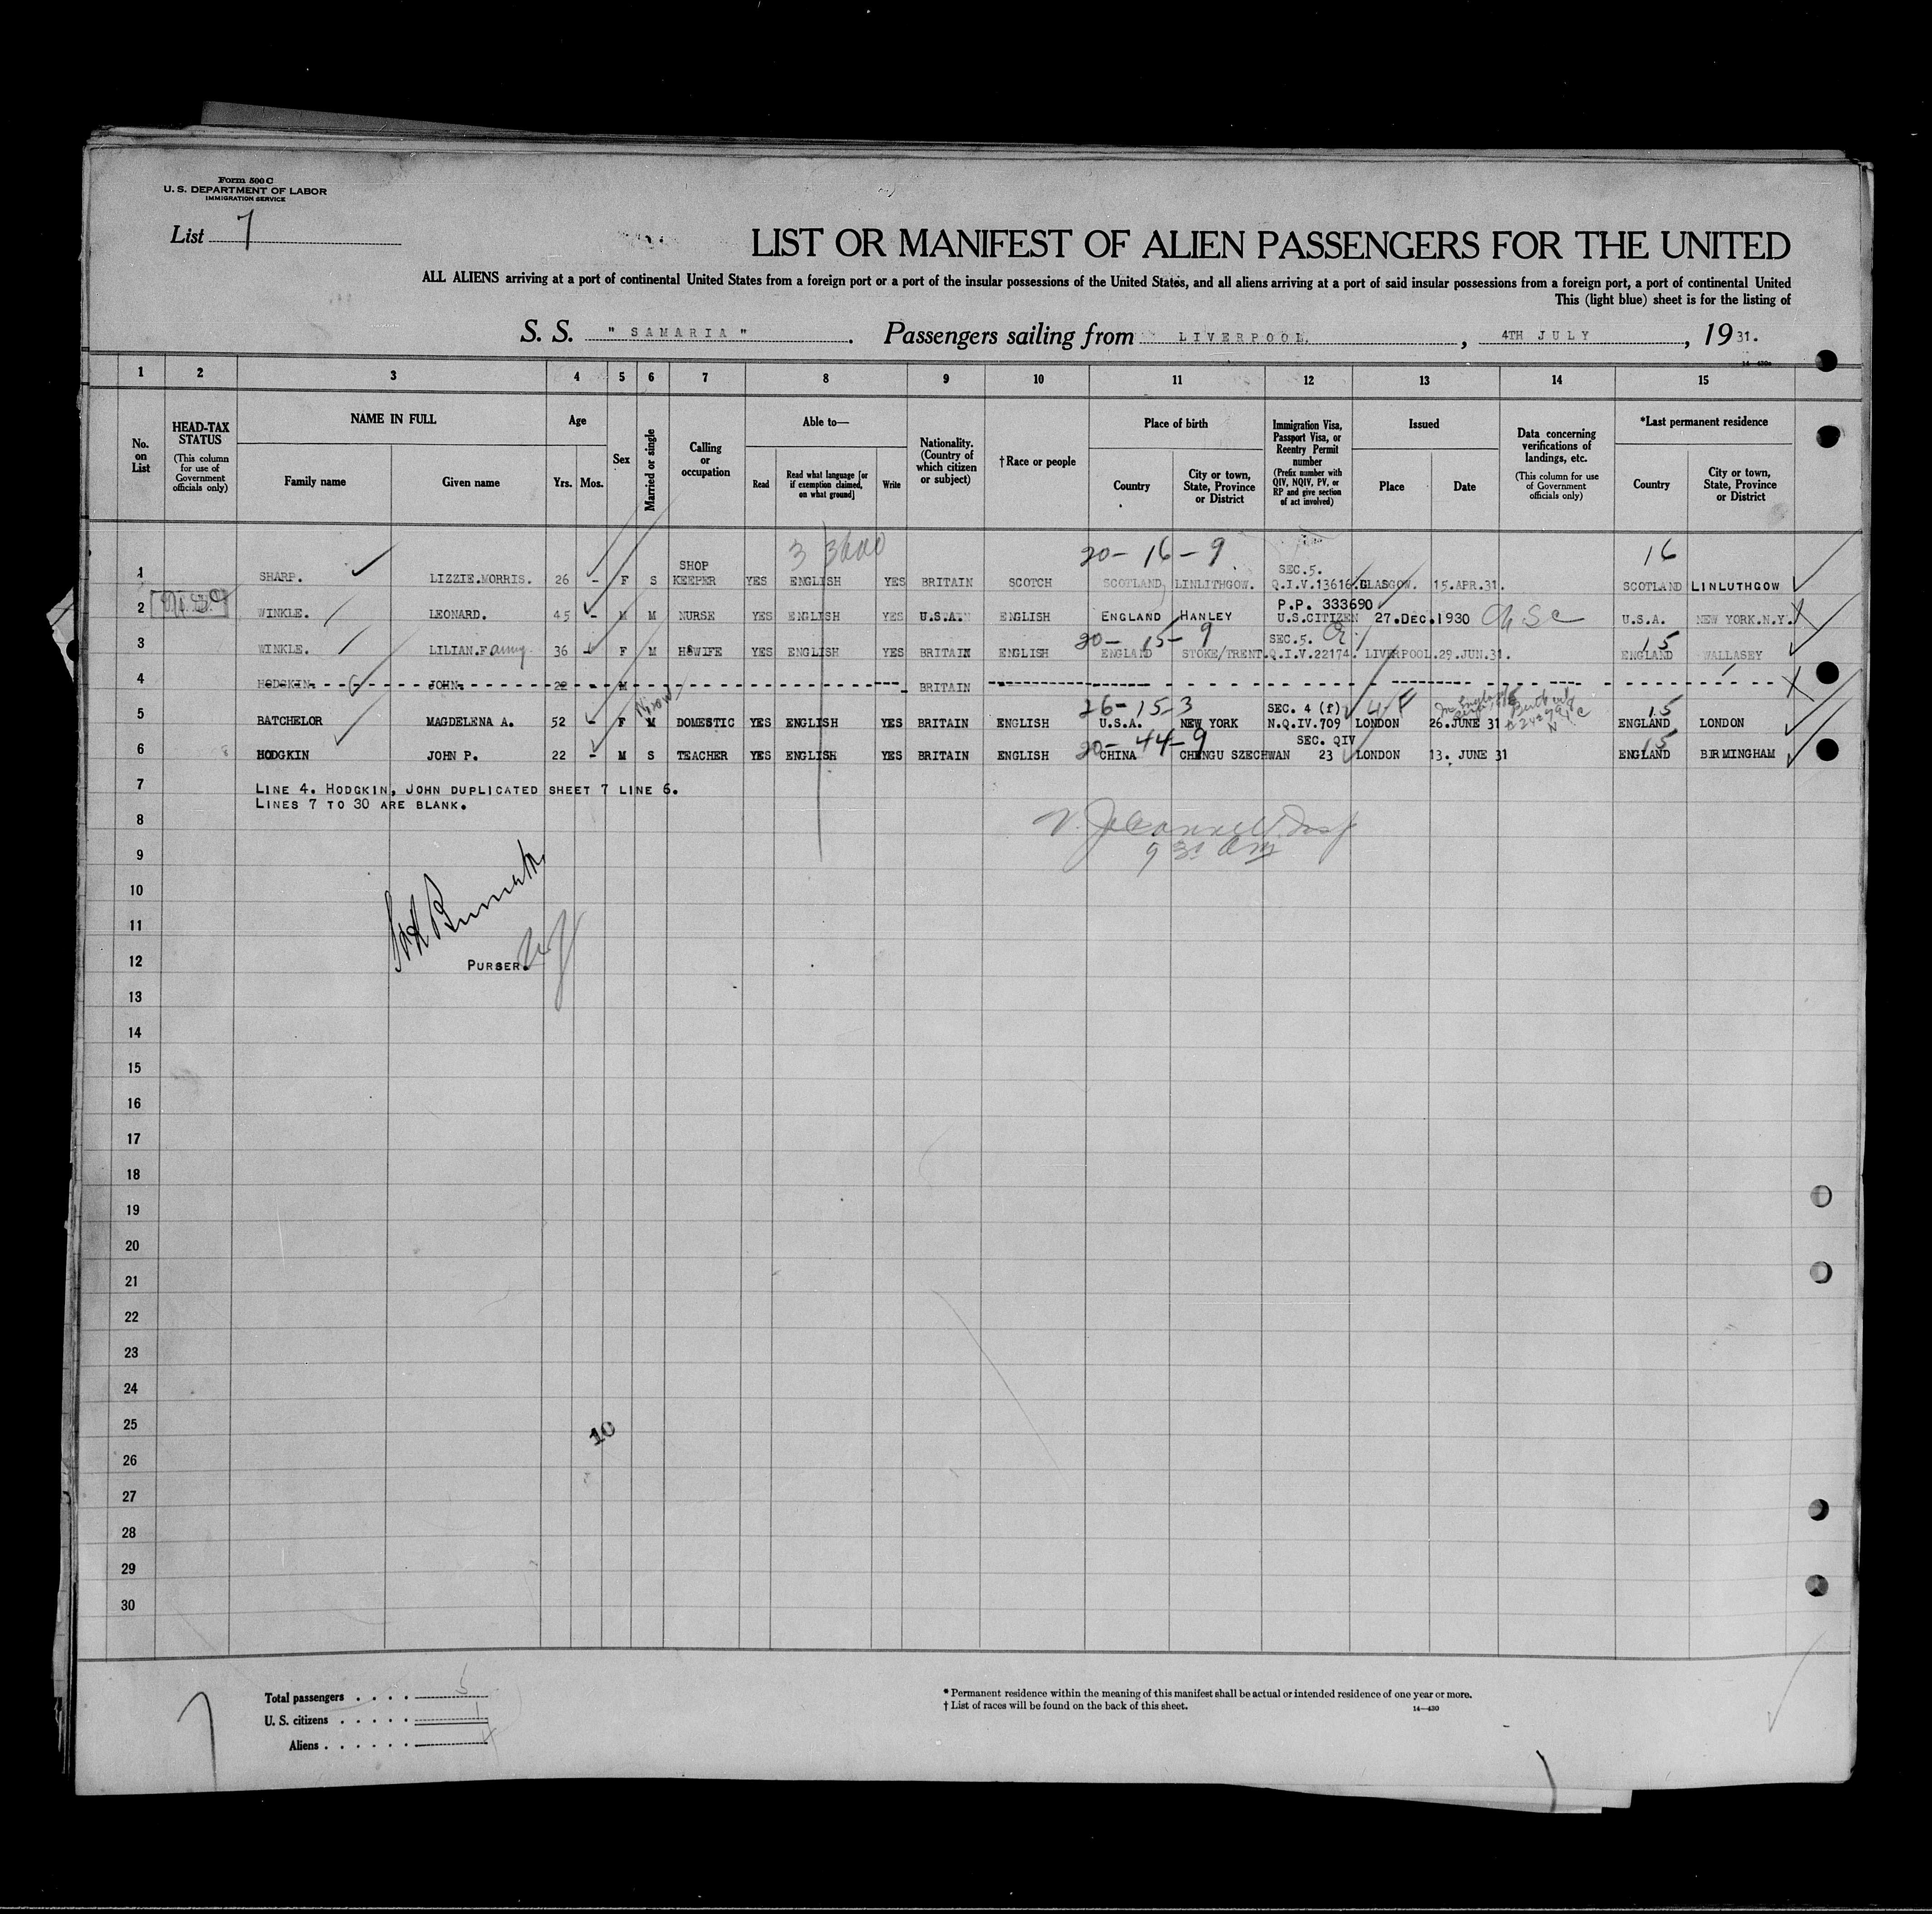 Form 500 C
U. S. DEPARTMENT OF LABOR
IMMIGRATION SERVICE
List 7
LIST OR MANIFEST OF ALIEN PASSENGERS FOR THE UNITED
ALL ALIENS arriving at a port of continental United States from a foreign port or a port of the insular possessions of the United States, and all aliens arriving at a port of said insular possessions from a foreign port, a port of continental United
This (light blue) sheet is for the listing of
S. S. " SAMARIA " . Passengers sailing from LIVERPOOL. , 4TH JULY , 19 31.
1 2 3 4 5 6 7 8 9 10 11 12 13 14 15
No. on List
HEAD-TAX STATUS (This column for use of Government officials only)
NAME IN FULL
Family name
Given name
Age
Yrs. Mos.
Sex
Married or single
Calling or occupation
Able to—
Read
Read what language [or if exemption claimed, on what ground]
Write
Nationality. (Country of which citizen or subject)
†Race or people
Place of birth
Country
City or town, State, Province or District
Immigration Visa, Passport Visa, or Reentry Permit number (Prefix number with QIV, NQIV, PV, or RP and give section of act involved)
Issued
Place
Date
Data concerning verifications of landings, etc. (This column for use of Government officials only)
*Last permanent residence
Country
City or town, State, Province or District
3 3600 20- 16 - 9 16
1 SHARP. LIZZIE.MORRIS. 26 - F S SHOP KEEPER YES ENGLISH YES BRITAIN SCOTCH SCOTLAND LINLITHGOW. SEC.5. Q.I.V.13616. GLASGOW. 15.APR.31. SCOTLAND LINLUTHGOW
2 WINKLE. LEONARD. 45 - M M NURSE YES ENGLISH YES U.S.A. ENGLISH ENGLAND HANLEY P.P. 333690 U.S.CITIZEN 27.DEC.1930 U.S.A. NEW YORK.N.Y.
20- 15- 9 15
3 WINKLE. LILIAN.Fanny. 36 - F M HSWIFE YES ENGLISH YES BRITAIN ENGLISH ENGLAND STOKE/TRENT. SEC.5. Q.I.V.22174. LIVERPOOL. 29.JUN.31. ENGLAND WALLASEY
4 HODGKIN. JOHN. 22 - M BRITAIN
26-15-3 4 F 15
5 BATCHELOR MAGDELENA A. 52 - F M DOMESTIC YES ENGLISH YES BRITAIN ENGLISH U.S.A. NEW YORK SEC. 4 (f) N.Q.IV.709 LONDON 26.JUNE 31 ENGLAND LONDON
20- 44-9 15
6 HODGKIN JOHN P. 22 - M S TEACHER YES ENGLISH YES BRITAIN ENGLISH CHINA CHENGU SZECHWAN SEC. QIV 23 LONDON 13. JUNE 31 ENGLAND BIRMINGHAM
7 LINE 4. HODGKIN, JOHN DUPLICATED SHEET 7 LINE 6.
LINES 7 TO 30 ARE BLANK.
8
9
9 30 am
10
11
12 PURSER.
13
14
15
16
17
18
19
20
21
22
23
24
25
10
26
27
28
29
30
7
Total passengers . . . . 5
U. S. citizens . . . . . 1
Aliens . . . . . . 4
* Permanent residence within the meaning of this manifest shall be actual or intended residence of one year or more.
† List of races will be found on the back of this sheet.
14—430